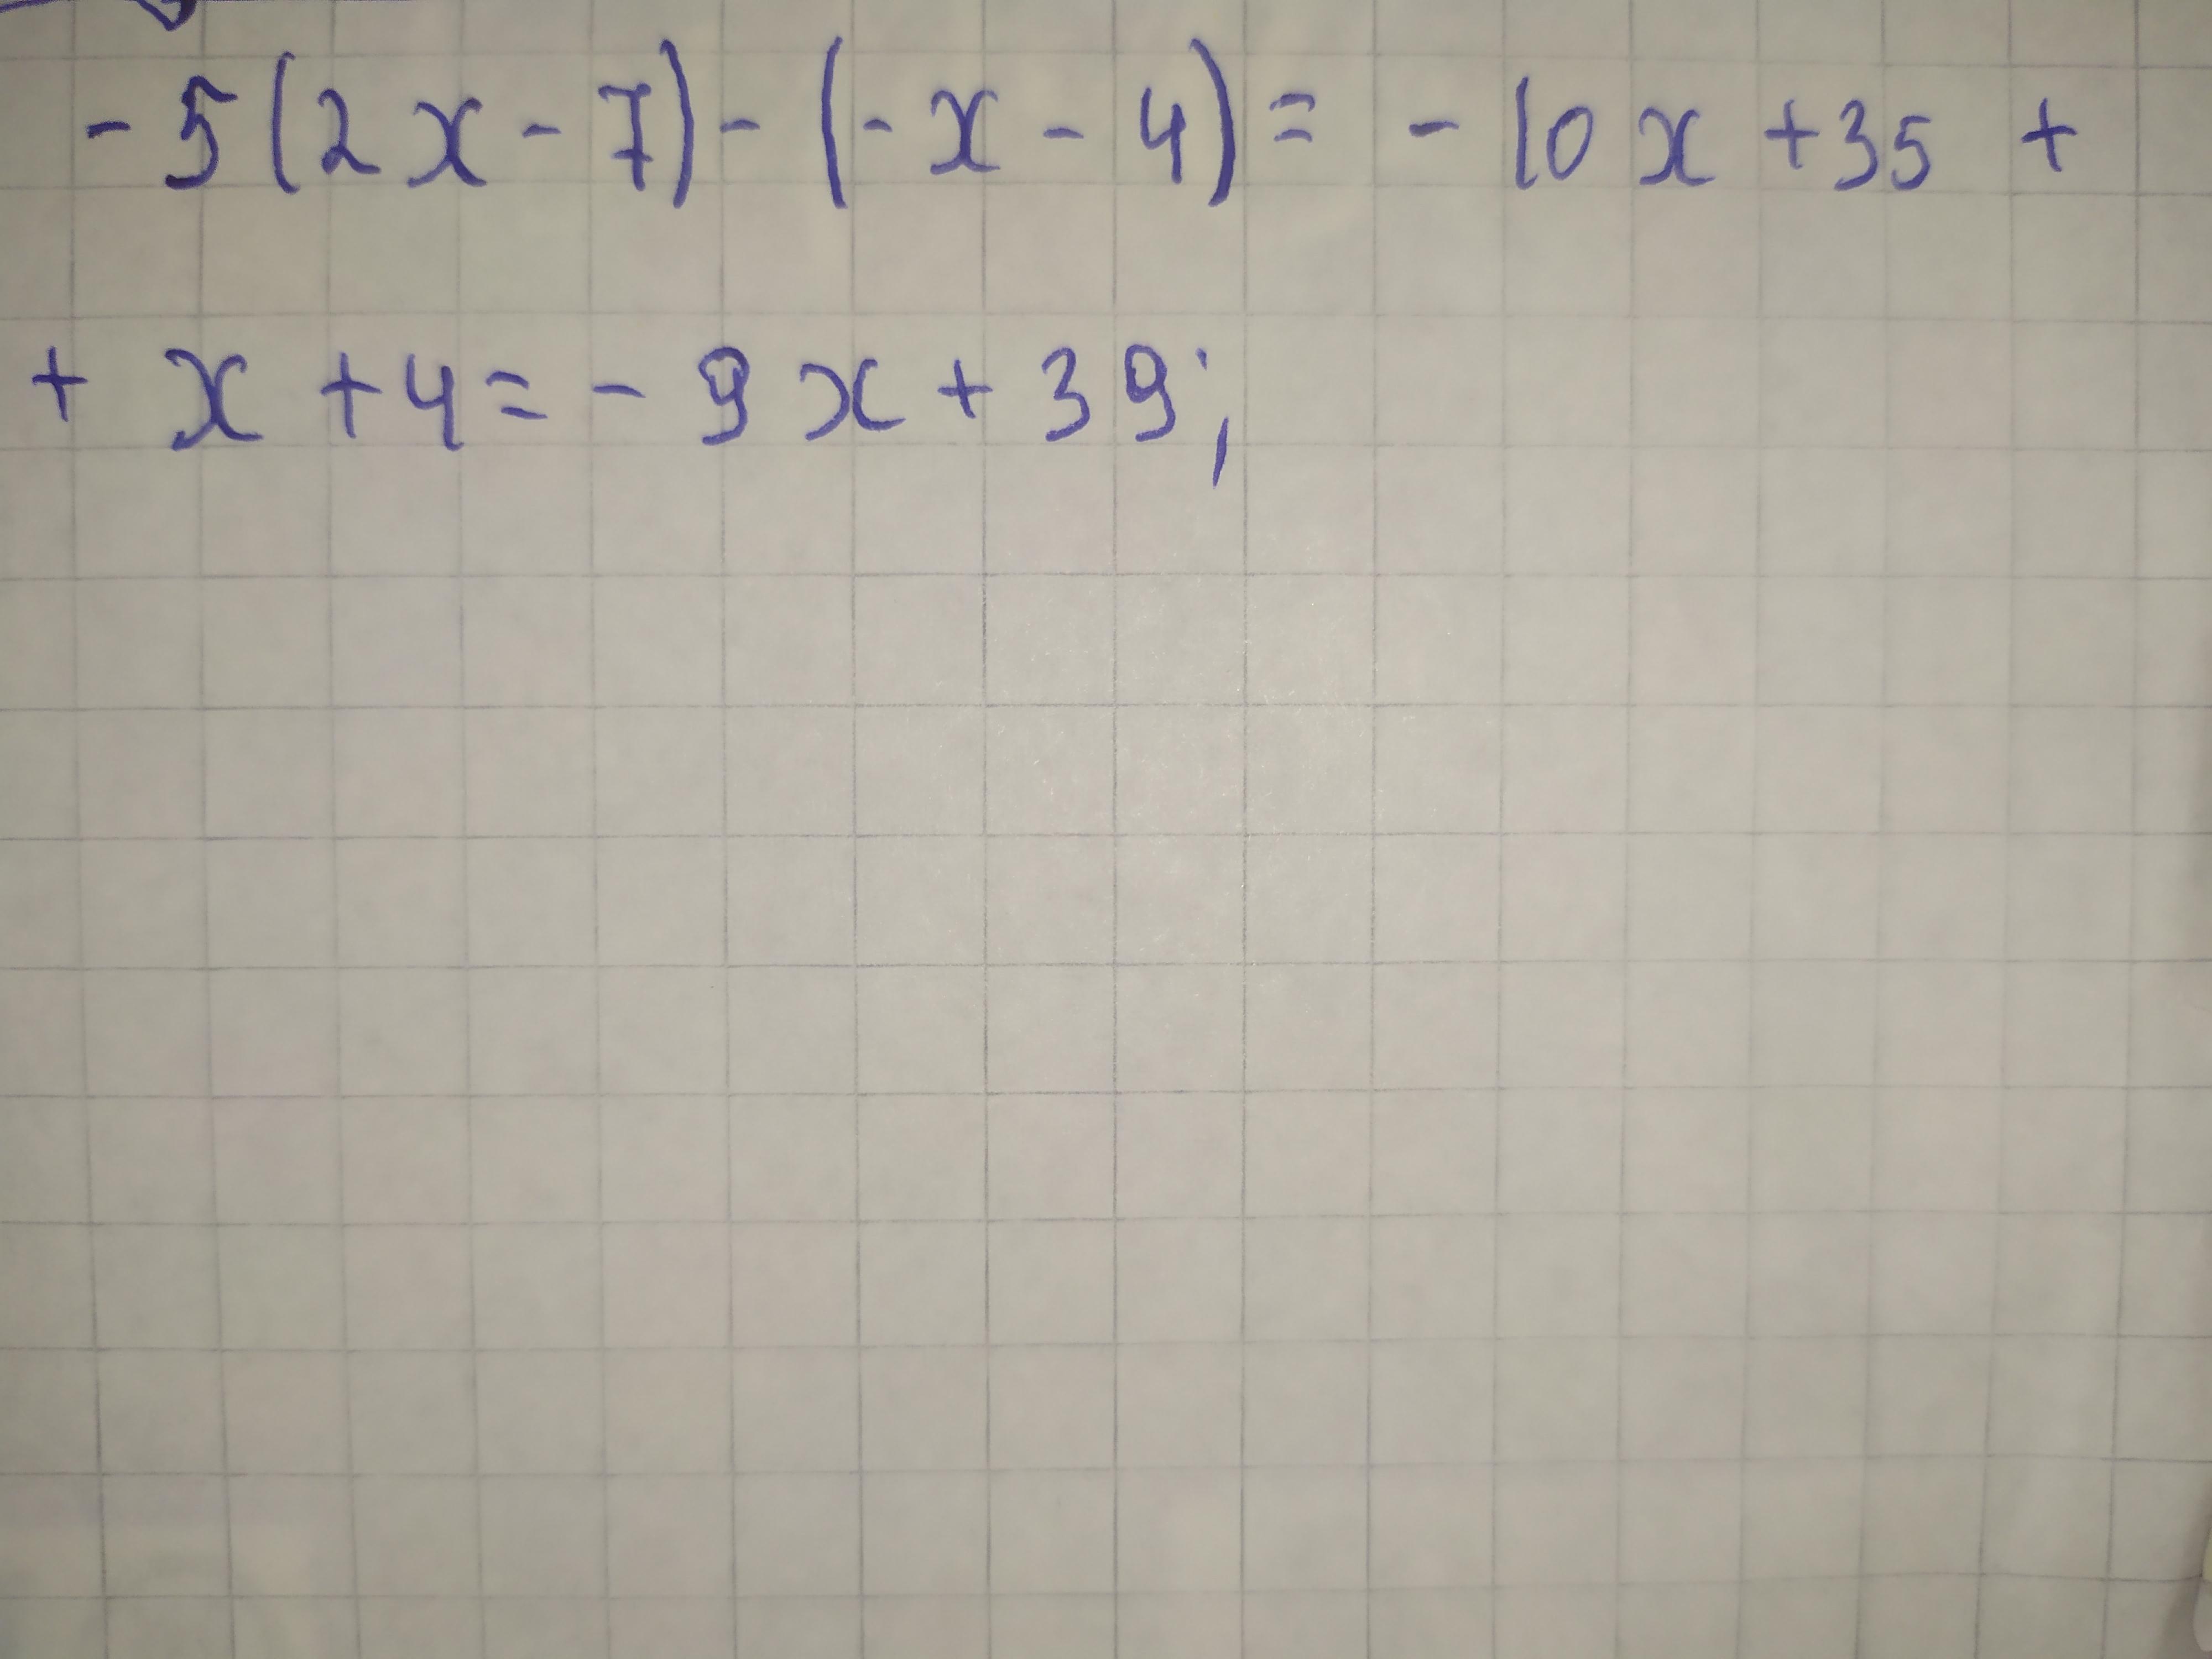 - 5(2x - 7) - (- x - 4) = - 10x + 35 +
+ x + 4 = - 9x + 39;